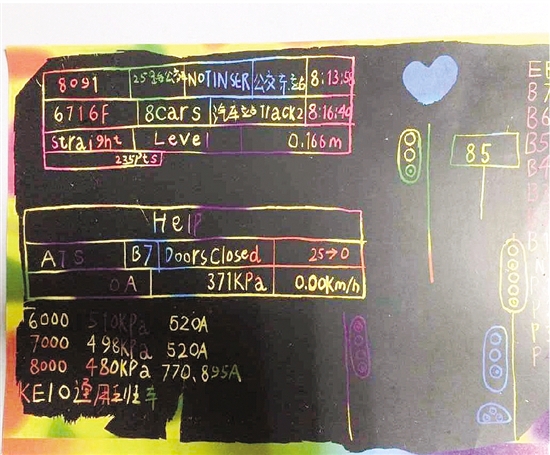 8091 25路公交 NOTINSER 公交车站 8:13:56
6716F 8cars 汽车站 Track2 8:16:40
Straight Level 0.166m
235Pts
85
Help
ATS B7 DoorsClosed 25→0
0A 371KPa 0.00Km/h
6000 510KPa 520A
7000 498KPa 520A
8000 480KPa 770.895A
KEIO運用班车
EE
B7
B6
B5
B4
B
B
N
P
P
P